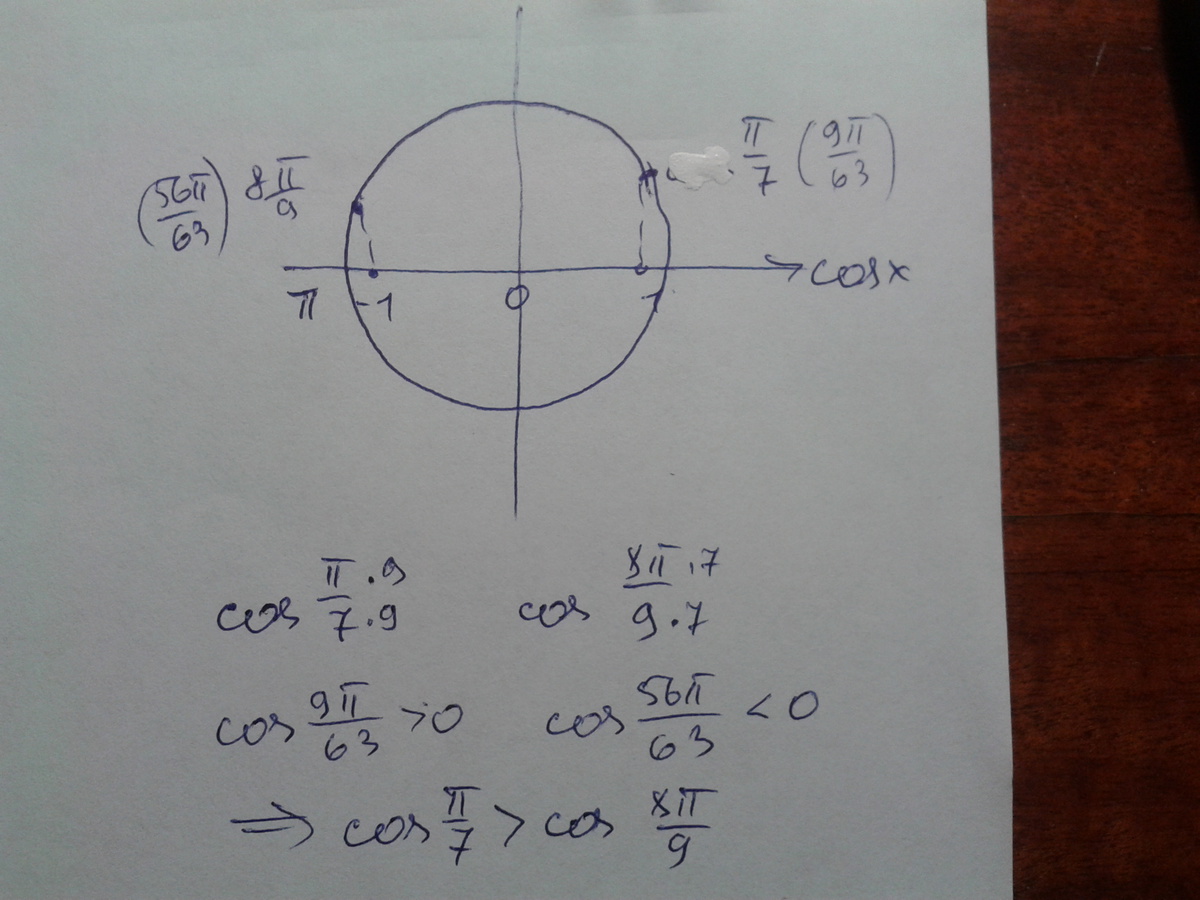 π/7 (9π/63)
(56π/63) 8π/9
cosx
π -1 0 1
cos π·9/7·9 cos 8π·7/9·7
cos 9π/63 >0 cos 56π/63 < 0
⇒ cos π/7 > cos 8π/9